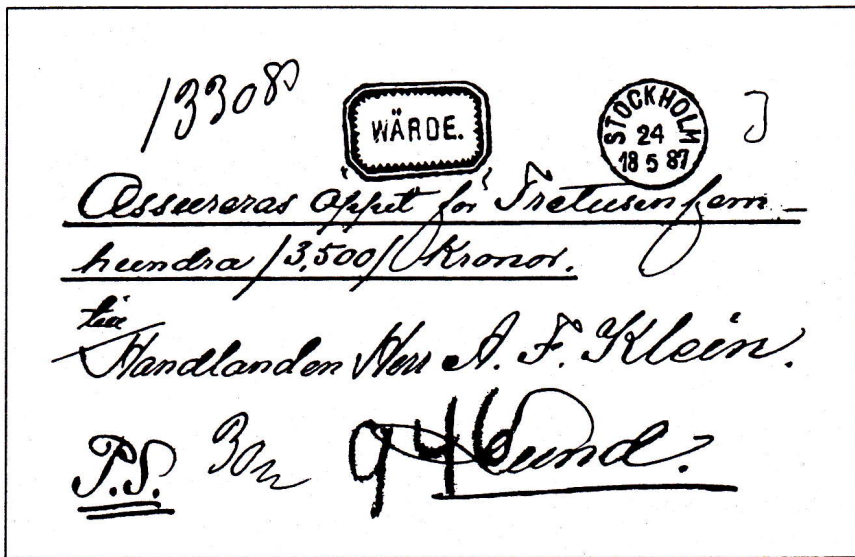 13308
WÄRDE.
STOCKHOLM
24
18 5 87
Assureras öppet för Tretusenfem-
hundra /3,500/ Kronor.
till
Handlanden Herr A. F. Klein.
P.S. 30
946
Lund.